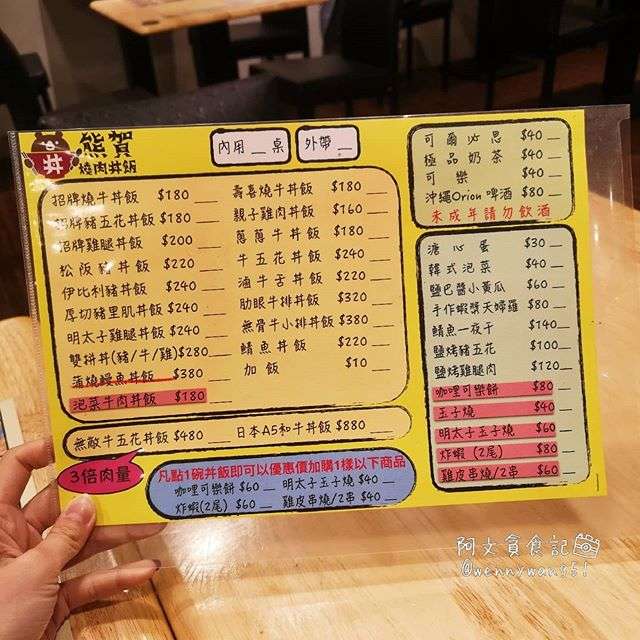 熊賀
燒肉丼飯
內用__桌
外帶__
招牌燒牛丼飯 $180
招牌豬五花丼飯 $180
招牌雞腿丼飯 $200
松阪豬丼飯 $220
伊比利豬丼飯 $240
厚切豬里肌丼飯 $240
明太子雞腿丼飯 $240
雙拼丼(豬/牛/雞) $280
蒲燒鰻魚丼飯 $380
泡菜牛肉丼飯 $180
壽喜燒牛丼飯 $180
親子雞肉丼飯 $160
蔥蔥牛丼飯 $180
牛五花丼飯 $240
滷牛舌丼飯 $220
肋眼牛排丼飯 $320
無骨牛小排丼飯 $380
鯖魚丼飯 $220
加飯 $10
無敵牛五花丼飯 $480
日本A5和牛丼飯 $880
3倍肉量
凡點1碗丼飯即可以優惠價加購1樣以下商品
咖哩可樂餅 $60
明太子玉子燒 $40
炸蝦(2尾) $60
雞皮串燒/2串 $40
可爾必思 $40
極品奶茶 $40
可樂 $40
沖繩Orion啤酒 $80
未成年請勿飲酒
溏心蛋 $30
韓式泡菜 $40
鹽巴醬小黃瓜 $60
手作蝦漿天婦羅 $80
鯖魚一夜干 $140
鹽烤豬五花 $100
鹽烤雞腿肉 $120
咖哩可樂餅 $80
玉子燒 $40
明太子玉子燒 $60
炸蝦(2尾) $80
雞皮串燒/2串 $60
阿文貪食記